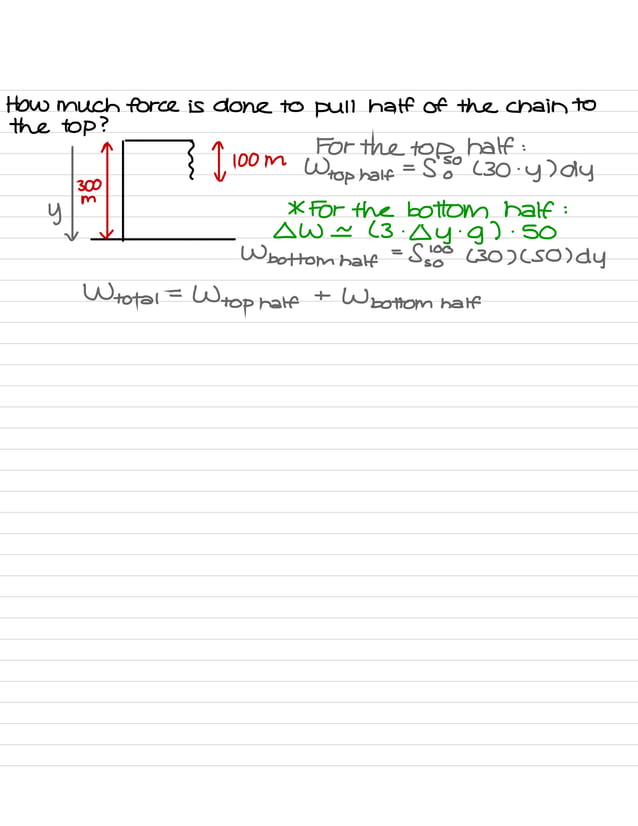 How much force is done to pull half of the chain to
the top?
300
m
y
100 m
For the top half :
W top half = S₀⁵⁰ (30·y)dy
* For the bottom half :
ΔW ≃ (3·Δy·g)·50
W bottom half = S₅₀¹⁰⁰ (30)(50)dy
W total = W top half + W bottom half